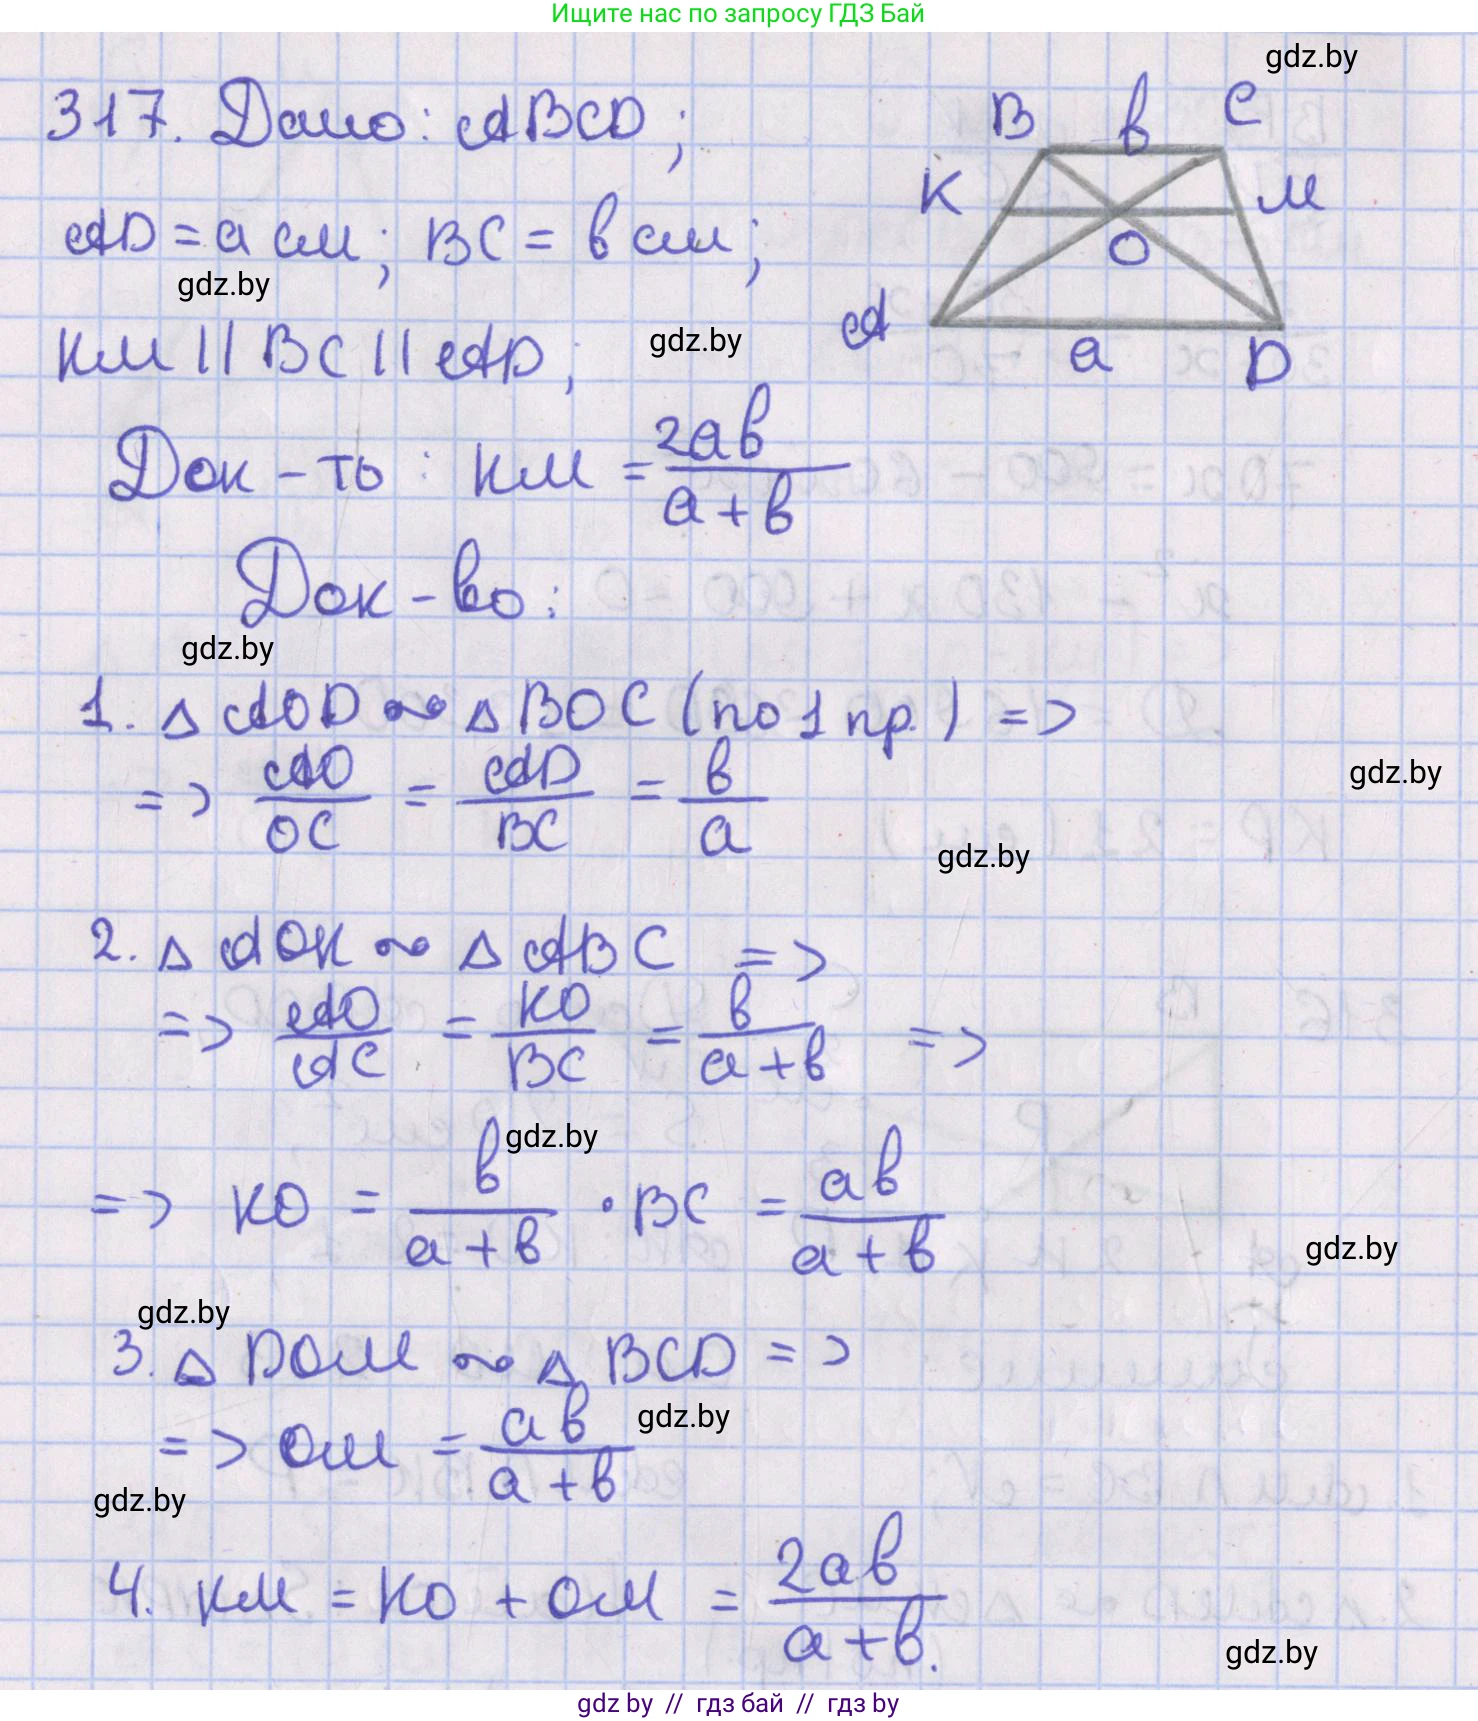 Ищите нас по запросу ГДЗ Бай
gdz.by
317. Дано: ABCD;
B в C
K M
AD = a см; BC = в см;
O
gdz.by
KM || BC || AD;
gdz.by
A a D
Док-ть: KM = 2ав / a+в
Док-во:
gdz.by
1. △ AOD ~ △ BOC (по 1 пр.) =>
=> AO/OC = AD/BC = в/a
gdz.by
gdz.by
2. △ AOK ~ △ ABC =>
=> AO/AC = KO/BC = в/a+в =>
gdz.by
=> KO = в/a+в · BC = ав/a+в
gdz.by
gdz.by
3. △ DOM ~ △ BCD =>
=> OM = ав/a+в
gdz.by
gdz.by
4. KM = KO + OM = 2ав/a+в.
gdz.by
gdz by // гдз бай // гдз by